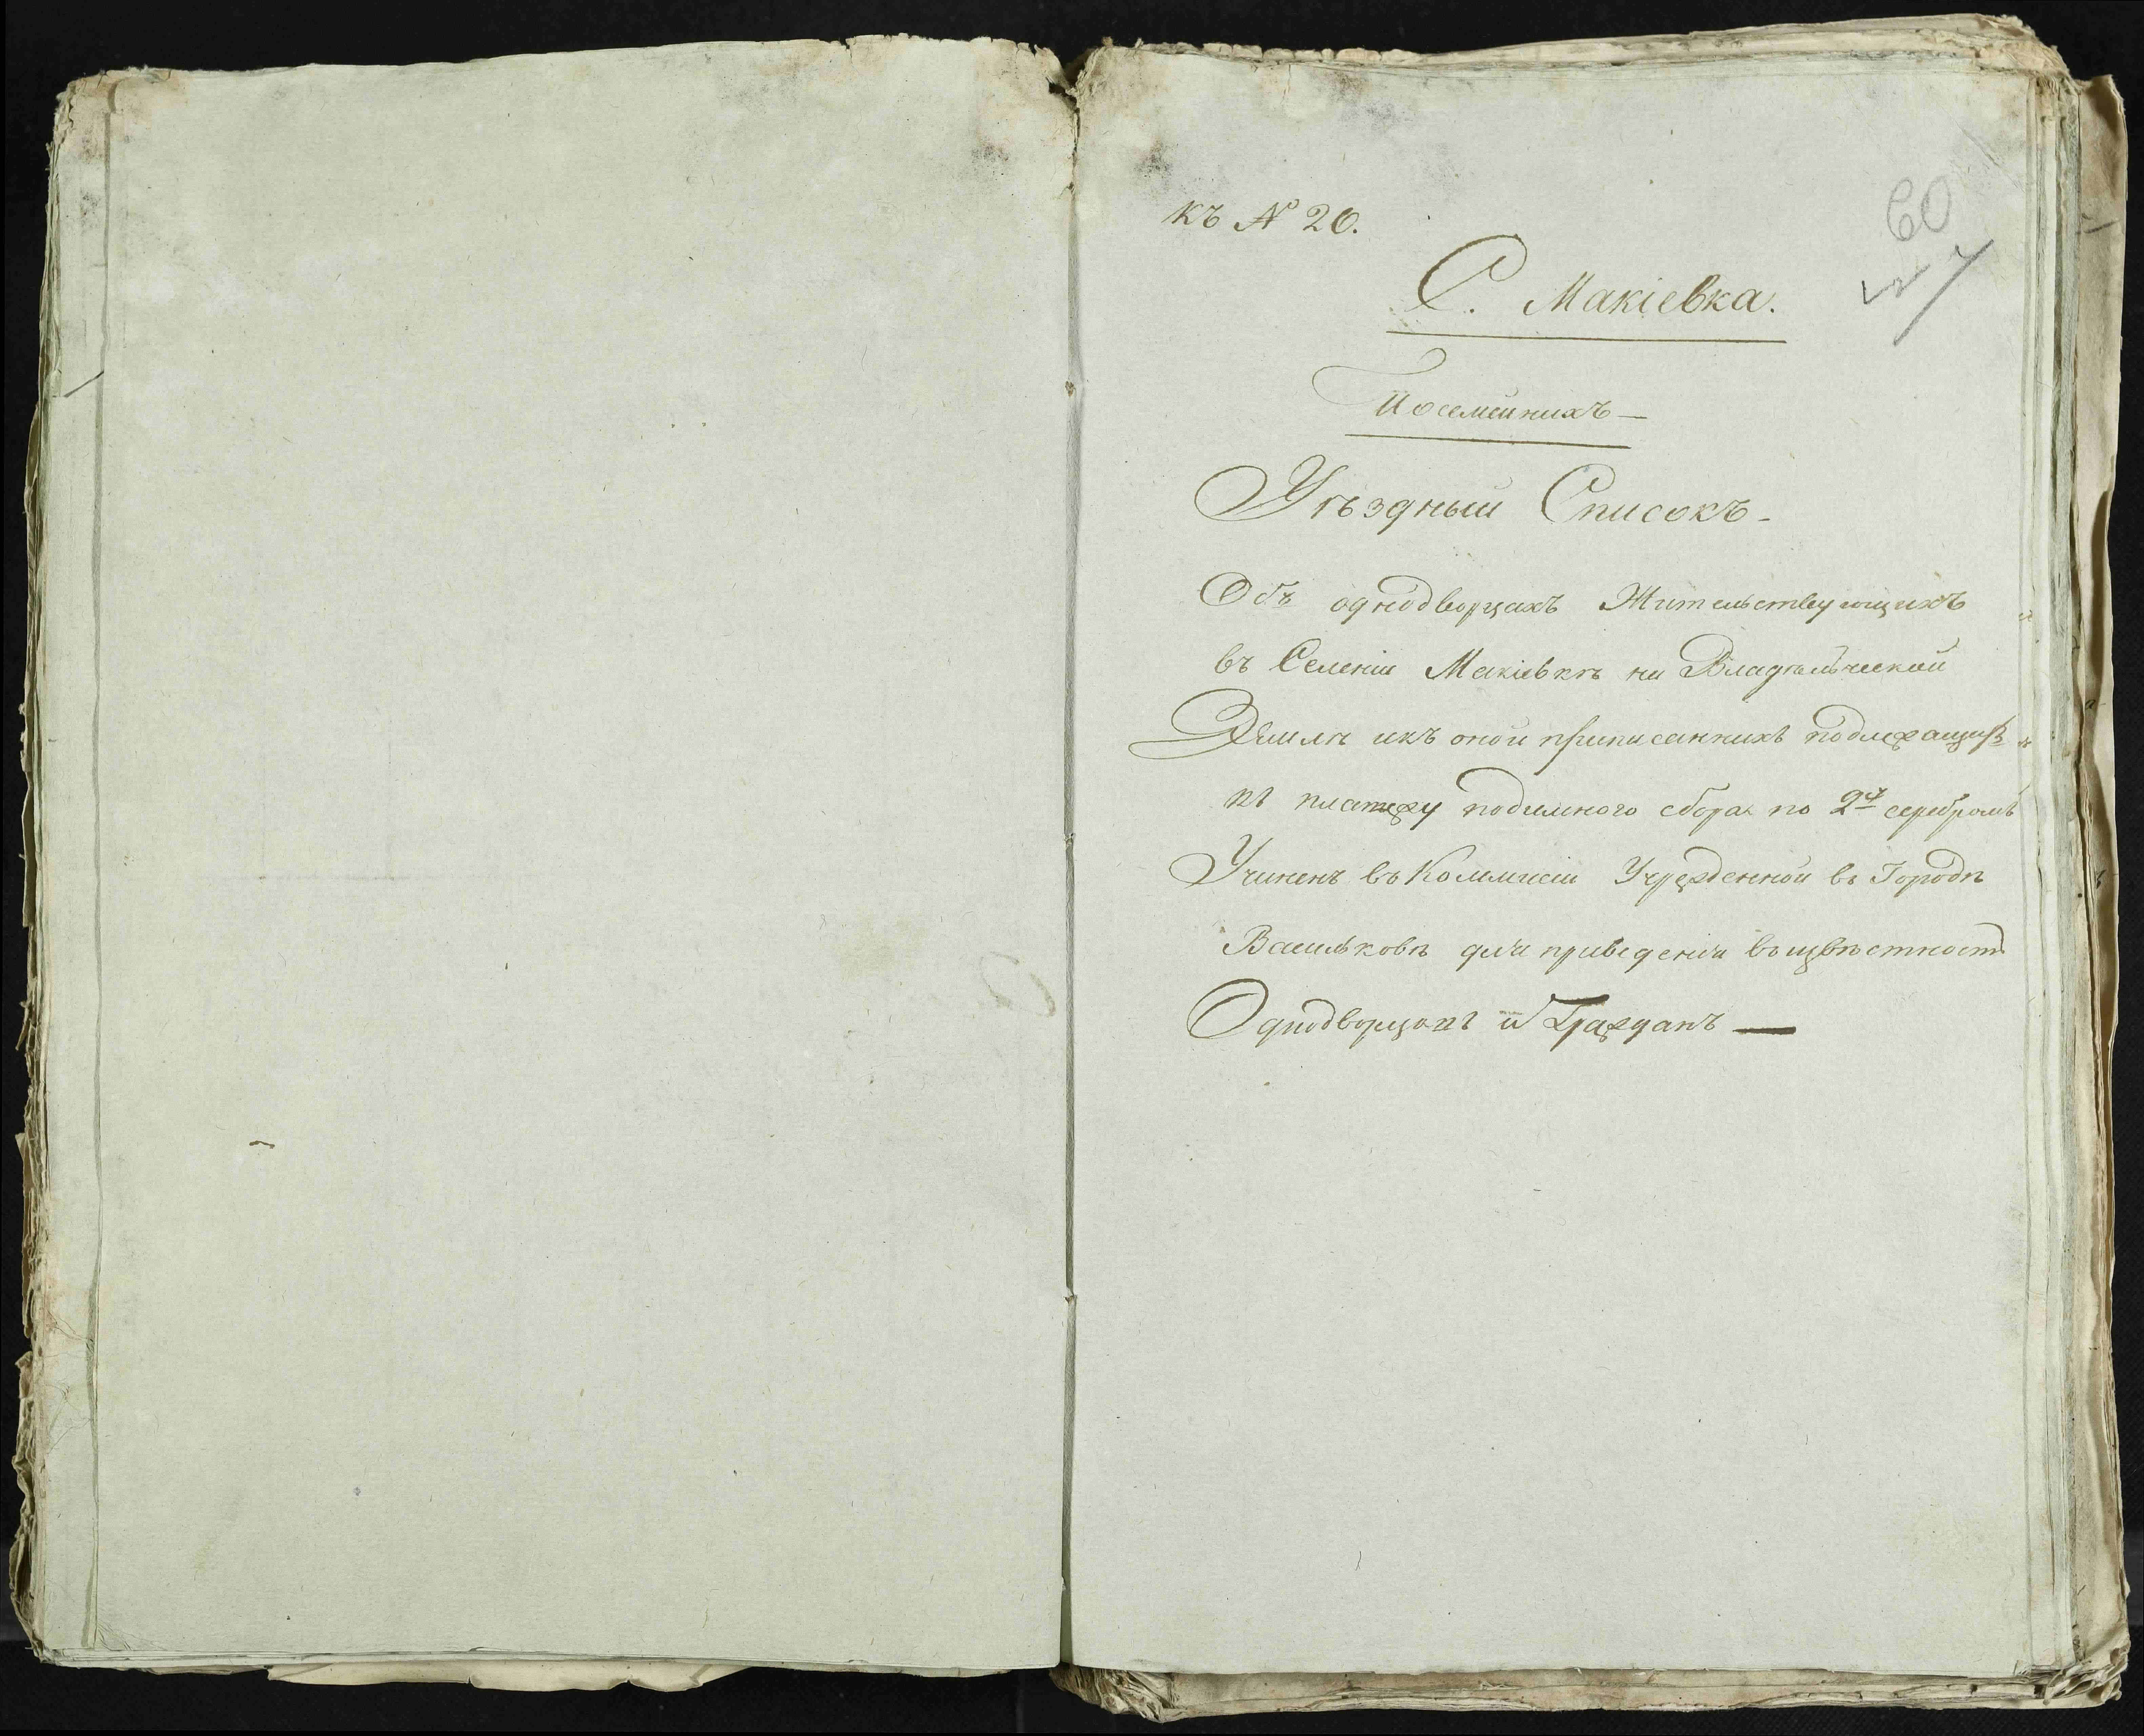 къ № 20.
60
С. Макіевка.
Посемейнихъ —
Уѣздный Списокъ -
Объ однодворцахъ Жительствующихъ
въ Селеніи Макіевкѣ на Владѣльческой
Землѣ икъ оной приписанныхъ подлежащихъ
къ платежу подимного сбора по 2 серебромъ
Учиненъ въ Коммисіи Учрежденной въ Городѣ
Васильковѣ для приведенія въ извѣстность
Однодворцовъ и Гражданъ —